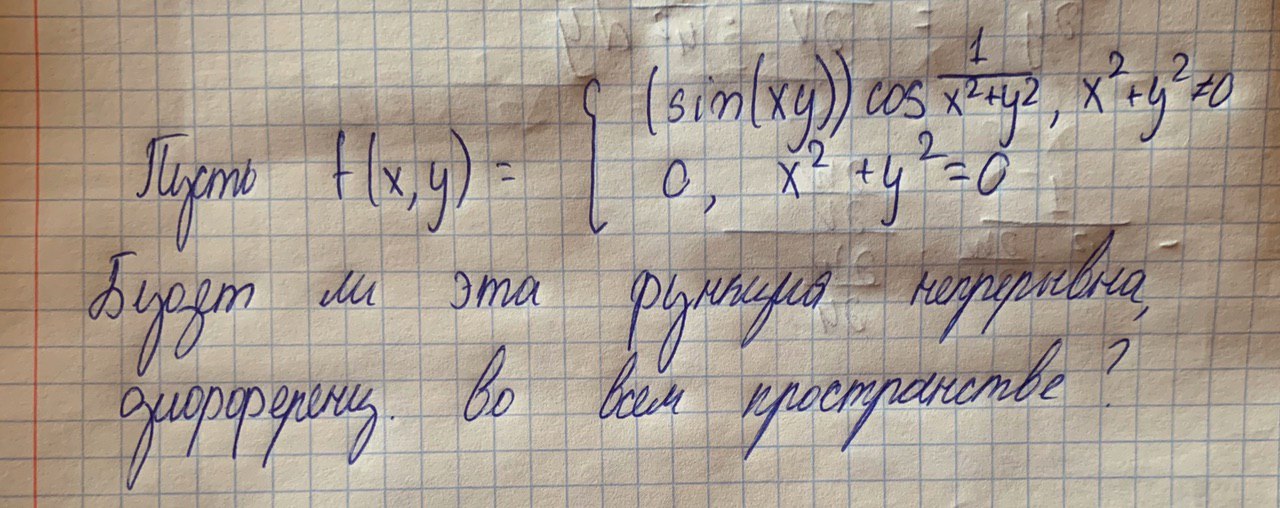 Пусть f(x,y) = { (sin(xy)) cos 1/(x²+y²), x²+y²≠0
0, x²+y²=0
Будет ли эта функция непрерывна,
дифференц. во всем пространстве?